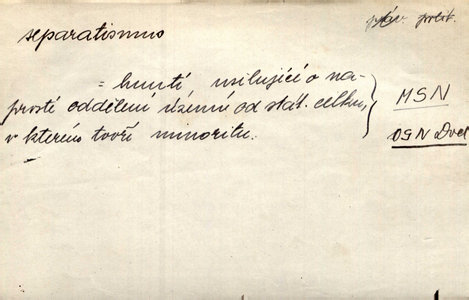 separatismus
práv. polit.
= hnutí usilující o na-
prosté oddělení územné od stát. celku,
v kterém tvoří minoritu.
MSN
OSN Dvol